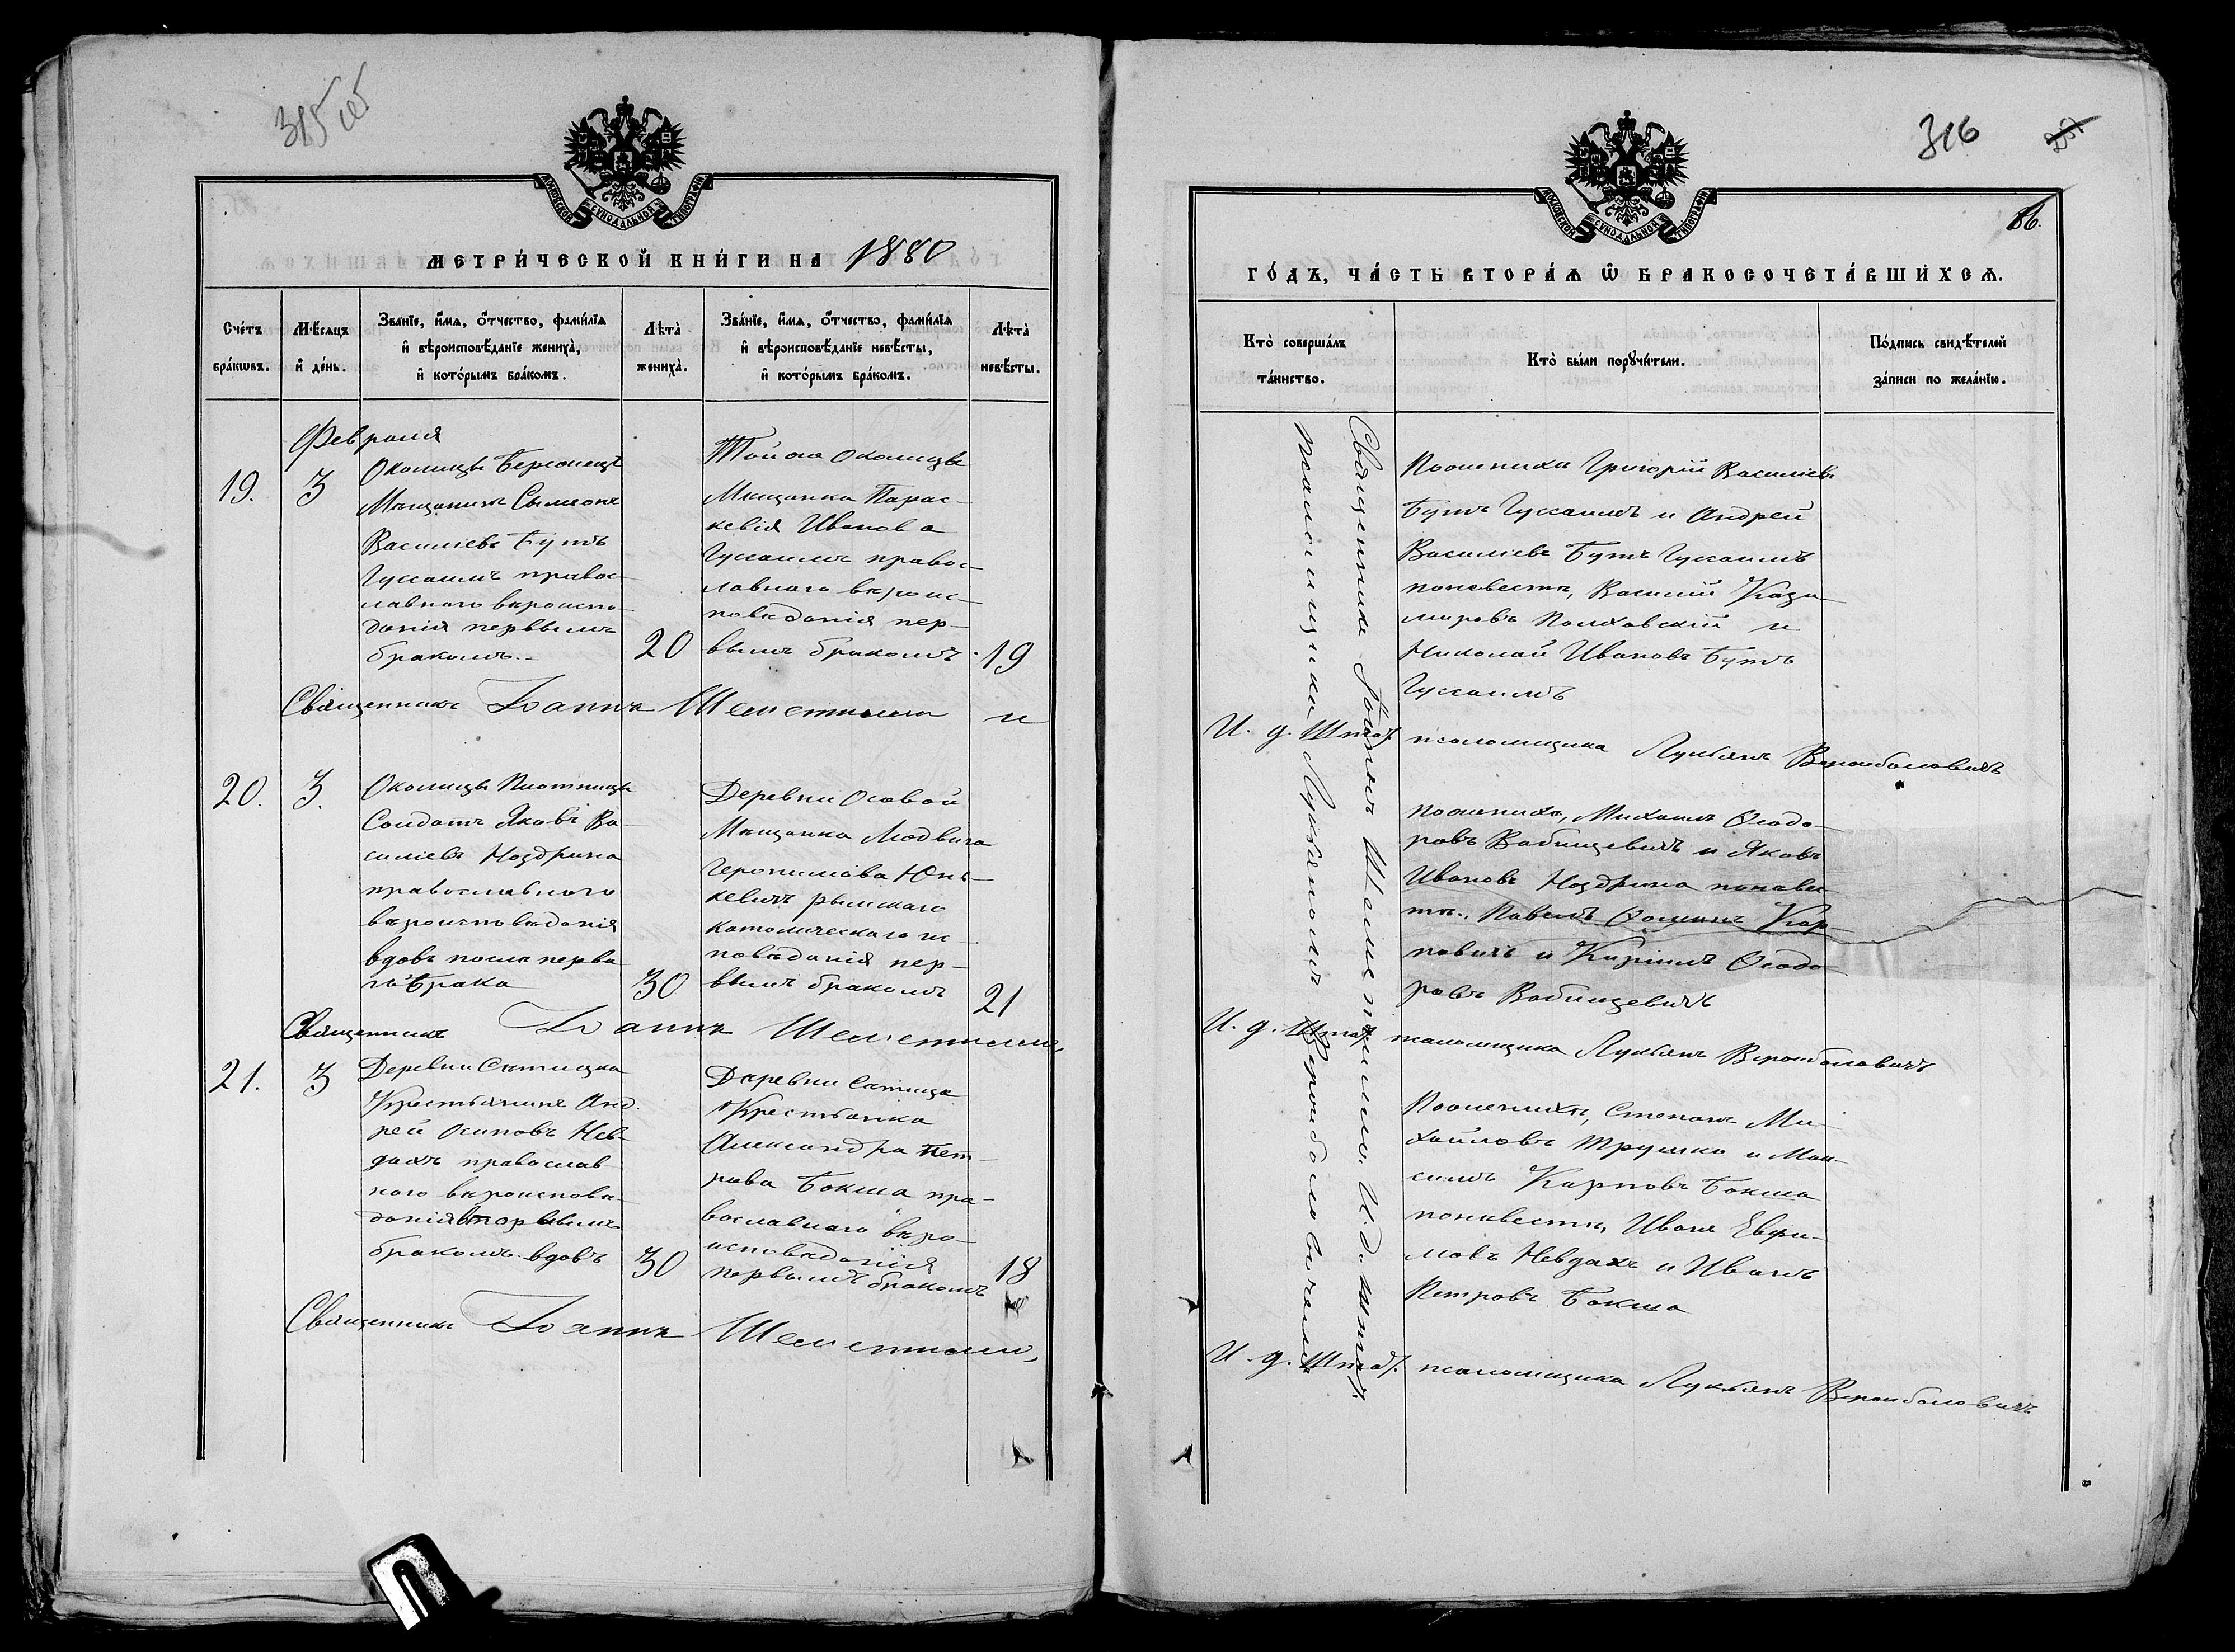 315 об
МОСКОВСКОЙ СѴНОДАЛЬНОЙ ТИПОГРАФІИ
МЕТРИ́ЧЕСКОЙ КНИ́ГИ НА 1880
Сче́тъ бра́кωвъ.
Мѣ́сяцъ и҆ де́нь.
Зва́нїе, и҆́мѧ, ѻ҆́тчество, фами́лїѧ
и҆ вѣроисповѣ́данїе жениха̀,
и҆ кото́рымъ бра́комъ.
Лѣта̀ жениха̀.
Зва́нїе, и҆́мѧ, ѻ҆́тчество, фами́лїѧ
и҆ вѣроисповѣ́данїе невѣ́сты,
и҆ кото́рымъ бра́комъ.
Лѣта̀ невѣ́сты.
Февраля
19.
3
Околицы
Мѣщанинъ Сымеонъ
Василіевъ Бутъ
Гуссаимъ правос-
лавнаго вѣроиспо-
данія первымъ
бракомъ.
20
Той же околицы
Мѣщанка Парас-
кевія Иванова
Гуссаимъ правос-
лавнаго вѣроис-
повѣданія пер-
вымъ бракомъ
19
Священникъ Іоаннъ Шеметилло и
20.
3.
Околицы
Солдатъ Яковъ Ва-
силіевъ Ноздрина
православнаго
вѣроисповѣданія
вдовъ послѣ перва
го брака
30
Деревни Осовой
Мѣщанка Людвига
Геронимова Юнь-
кевичъ рымскаго
католическаго ис-
повѣданія пер-
вымъ бракомъ
21
Священникъ Іоаннъ Шеметилло,
21.
3
Деревни Сятицка
Крестьянинъ Анд-
рей Осиповъ Нев-
дахъ православ
наго вѣроисповѣ-
данія вторымъ
бракомъ вдовъ
30
Деревни Сятицка
Крестьянка
Александра Пет-
рова Бокша пра-
вославнаго вѣро-
исповѣданія
первымъ бракомъ
18
Священникъ Іоаннъ Шеметилло,
316
МОСКОВСКОЙ СѴНОДАЛЬНОЙ ТИПОГРАФІИ
86.
ГО́ДЪ, ЧА́СТЬ ВТОРА́Ѧ Ѿ БРАКОСОЧЕТА́ВШИХСѦ.
Кто̀ соверша́лъ
та́инство.
Кто̀ бы́ли порꙋчи́тели.
По́дпись свидѣ́телей
за́писи по жела́нїю.
Священникъ Іоаннъ Шеметилло. И. д. штат.
псаломщика Лукьяномъ
По женихѣ Григорій Василіевъ
Бутъ Гуссаимъ и Андрей
Василіевъ Бутъ Гуссаимъ
по невестѣ, Василій Кази-
мировъ Полховскій и
Николай Ивановъ Бутъ
Гуссаимъ
И. д. Штат. псаломщика Лукьянъ
По женихѣ, Михаилъ Ѳеодо-
ровъ Бабицевичъ и Яковъ
Ивановъ Ноздрина по невес-
тѣ, Павелъ Ѳоминъ Кар-
повичъ и Кирилъ Ѳеодо-
ровъ Бабицевичъ
И. д. Штат. псаломщика Лукьянъ
По женихѣ, Степанъ Ми-
хайловъ Трушко и Мак-
симъ Карповъ Бокша
по невестѣ, Иванъ Евфи-
мовъ Невдахъ и Иванъ
Петровъ Бокша
И. д. Штат. псаломщика Лукьянъ